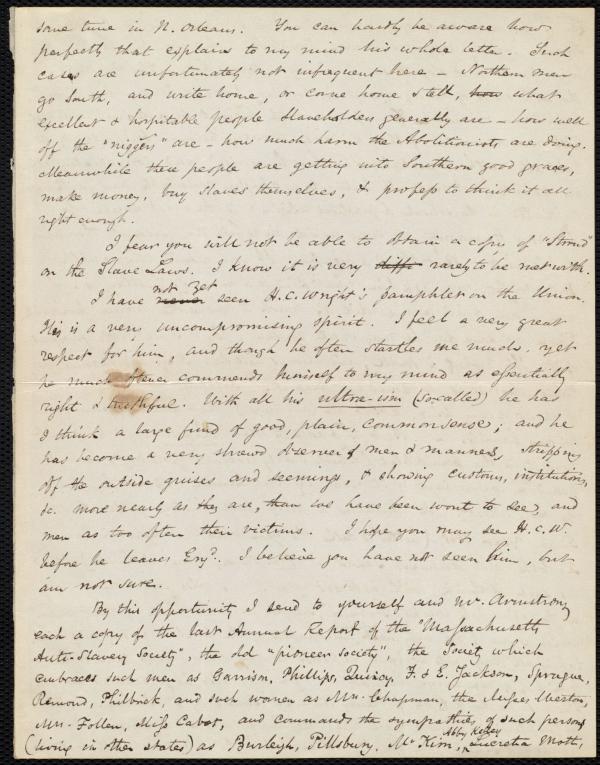 some time in N. Orleans. You can hardly be aware how
perfectly that explains to my mind his whole letter. Such
cases are unfortunately not infrequent here – Northern men
go South, and write home, or come home & tell, how what
excellent & hospitable people slaveholders generally are – how well
off the "niggers" are – how much harm the Abolitionists are doing.
Meanwhile these people are getting into Southern good graces,
make money, buy slaves themselves, & profess to think it all
right enough.
I fear you will not be able to obtain a copy of "Stroud"
on the Slave Laws. I know it is very diffi rarely to be met with.
not yet
I have never seen H. C. Wright's pamphlet on the Union.
His is a very uncompromising spirit. I feel a very great
respect for him, and though he often startles me much, yet
he much oftener commends himself to my mind as essentially
right & truthful. With all his ultra-ism (so-called) he has
I think a large fund of good, plain, common sense; and he
has become a very shrewd observer of men & manners, stripping
off the outside guises and seemings, & showing customs, institutions,
&c. more nearly as they are, than we have been wont to see, and
men as too often their victims. I hope you may see H. C. W.
before he leaves Engd. I believe you have not seen him, but
am not sure.
By this opportunity I send to yourself and Mr. Armstrong
each a copy of the last Annual Report of the "Massachusetts
Anti-Slavery Society", the old "pioneer society", the Society which
embraces such men as Garrison, Phillips, Quincy, F. & E. Jackson, Sprague,
Remond, Philbrick, and such women as Mrs. Chapman, the Misses Weston,
Mrs. Follen, Miss Cabot, and commands the sympathies of such persons
Abby Kelley
(living in other states) as Burleigh, Pillsbury, McKim, Lucretia Mott,